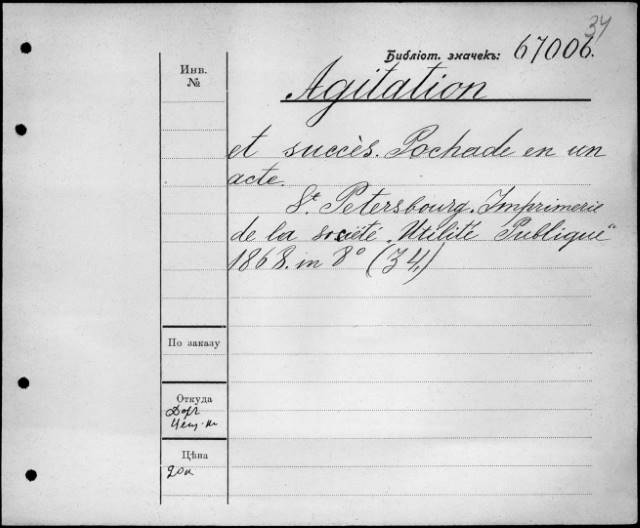 34
Библіот. значекъ: 67006.
Инв.
№
Agitation
et succès. Pochade en un
acte.
St. Petersbourg. Imprimerie
de la société „Utilité Publique“
1868. in 8° (34)
По заказу
Откуда
Цѣна